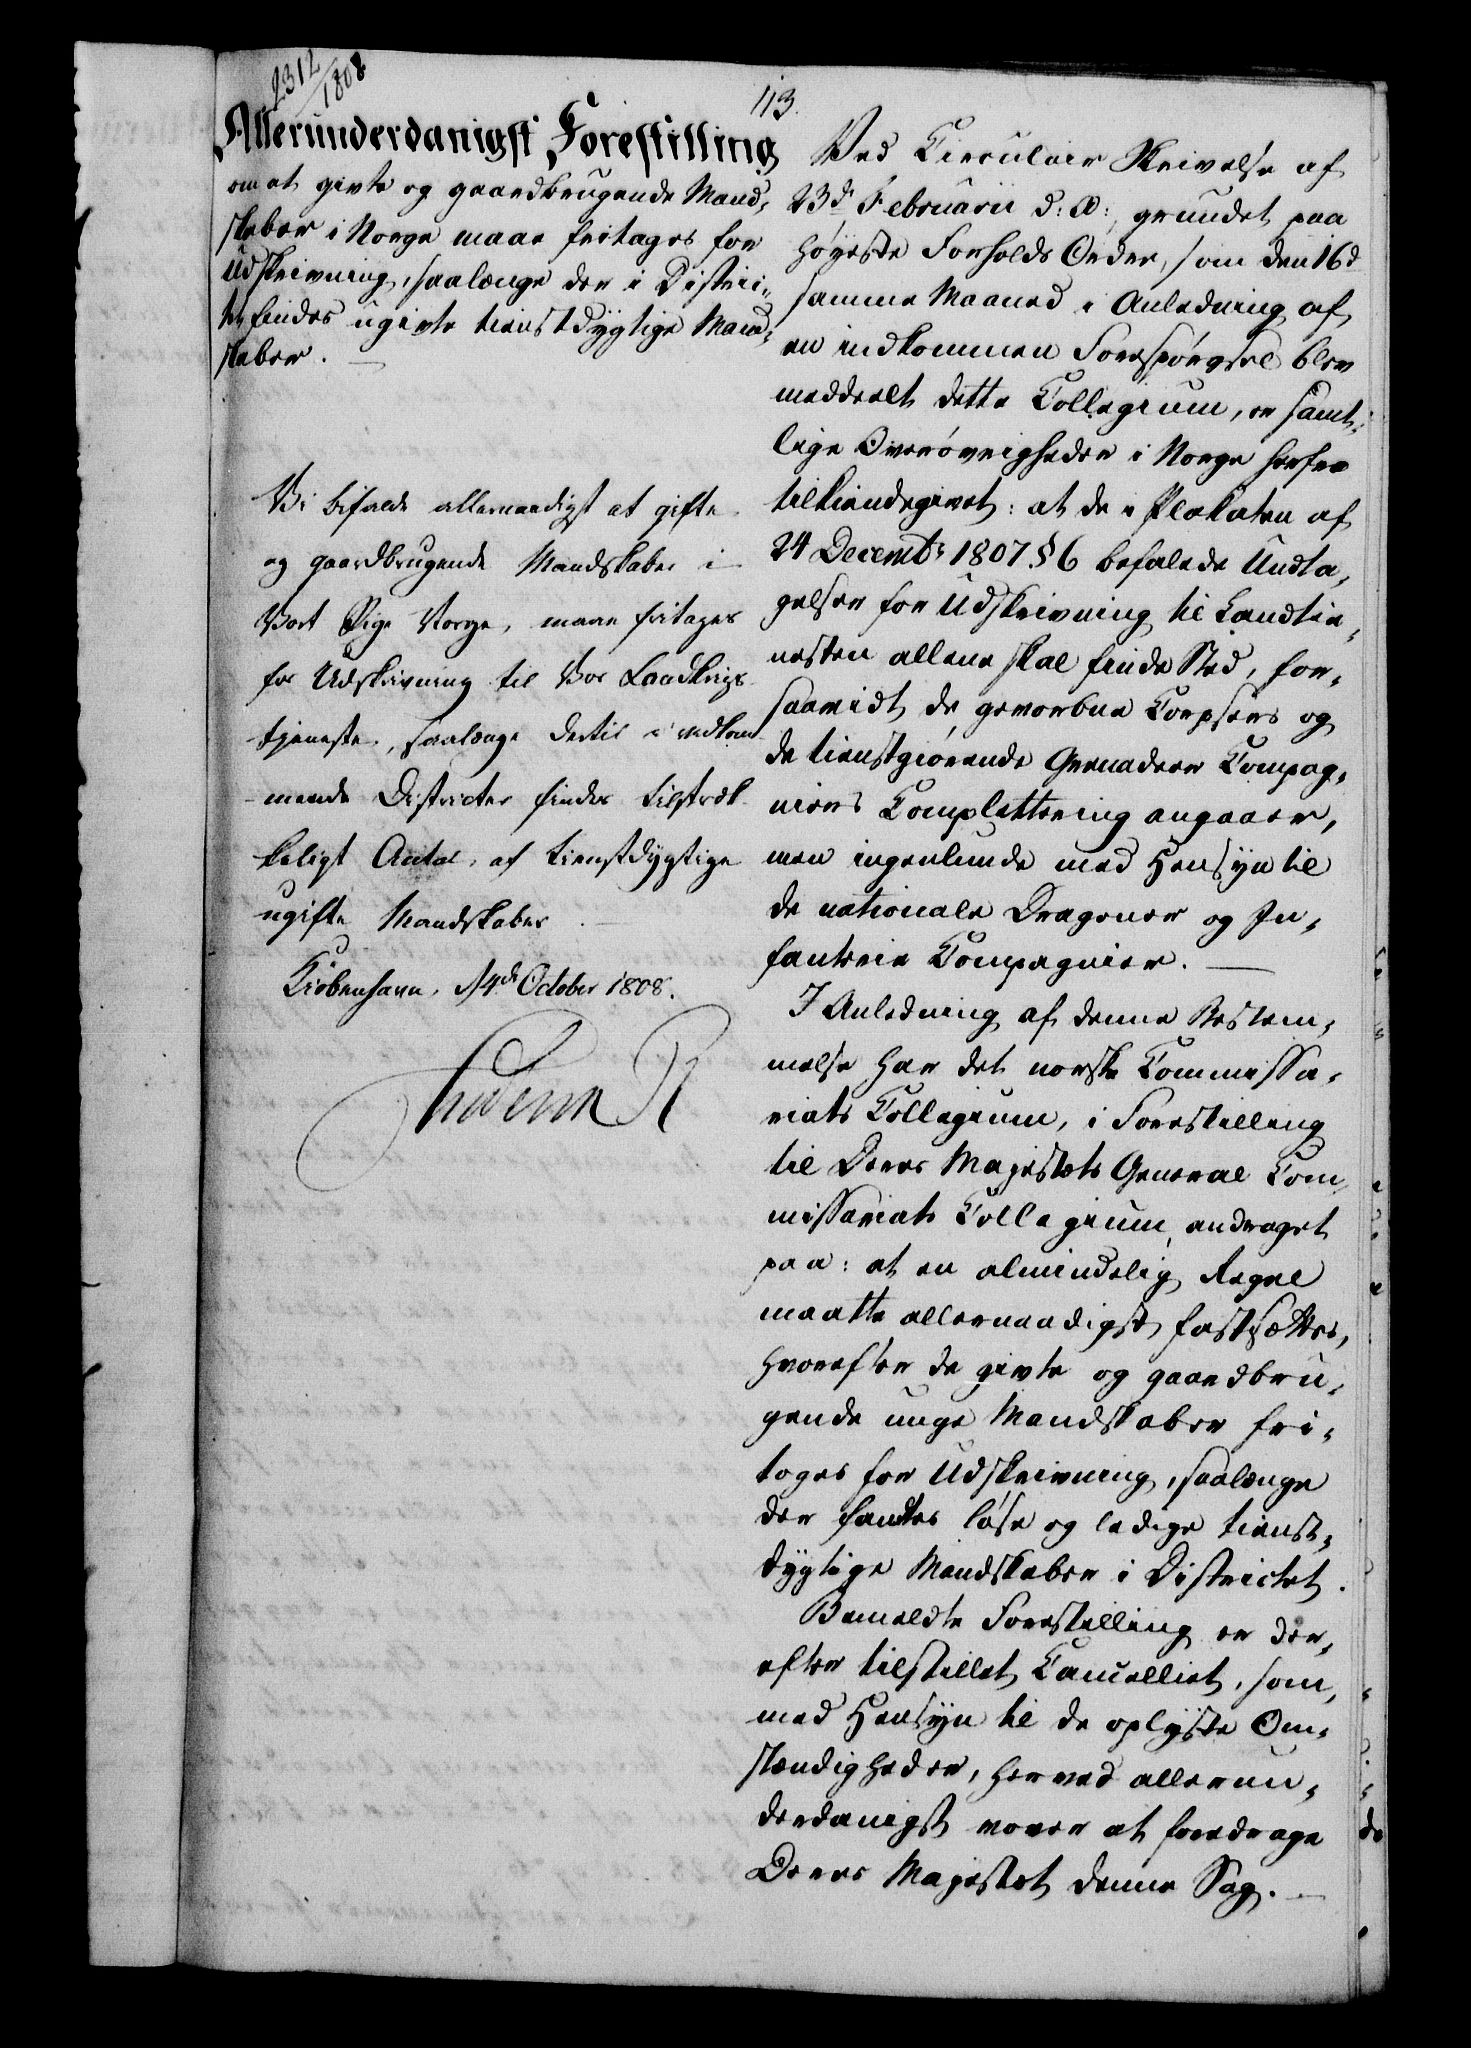 2312/1808
113.
Allerunderdanigst Forestilling
om at givte og gaardbrugende Mand,
skaber i Norge maae fritages for
Udskrivning, saalænge der i Distric,
tet findes ugivte tienstdygtige Mand,
skaber. —
Vi bifalde allernaadigst at gifte
og gaardbrugende Mandskaber i
Vort Rige Norge, maae fritages
for Udskrivning til Vor Landkrigs
tjeneste, saalænge dertil i vedkom-
mende Districter findes tilstræk-
keligt Antal af tienstdygtige
ugifte Mandskaber.
Kiøbenhavn, d 14de October 1808.
Frederik R
Ved Circulair Skrivelse af
23de Februarii d: A:, grundet paa
høyeste Forholds Ordre, som den 16d
samme Maaned i Anledning af
en indkommen Forespørgsel blev
meddeelt dette Collegium, er samt,
lige Overøvrigheder i Norge herfra
tilkiendegivet: at de i Plakaten af
24 Decembr 1807 § 6 befalede Undta,
gelser for Udskrivning til Landtie,
nesten allene skal finde Sted, for,
saavidt de gevorbne Corpsers og
de tienstgiørende Grenadeer Compag,
niers Complettering angaaer,
men ingenlunde med Hensyn til
de nationale Dragoner og In,
fanterie Compagnier. —
I Anledning af denne Bestem,
melse har det norske Commissa,
riats Collegium, i Forestilling
til Deres Majestæts General Com,
missariats Collegium, andraget
paa: at en almindelig Regel
maatte allernaadigst fastsættes,
hvorefter de givte og gaardbru,
gende unge Mandskaber fri,
toges for Udskrivning, saalænge
der fandtes løse og ledige tienst,
dygtige Mandskaber i Districtet.
Bemeldte Forestilling er der,
efter tilstillet Cancelliet, som,
med Hensyn til de oplyste Om,
stændigheder, herved allerun,
derdanigst vover at foredrage
Deres Majestæt denne Sag. —